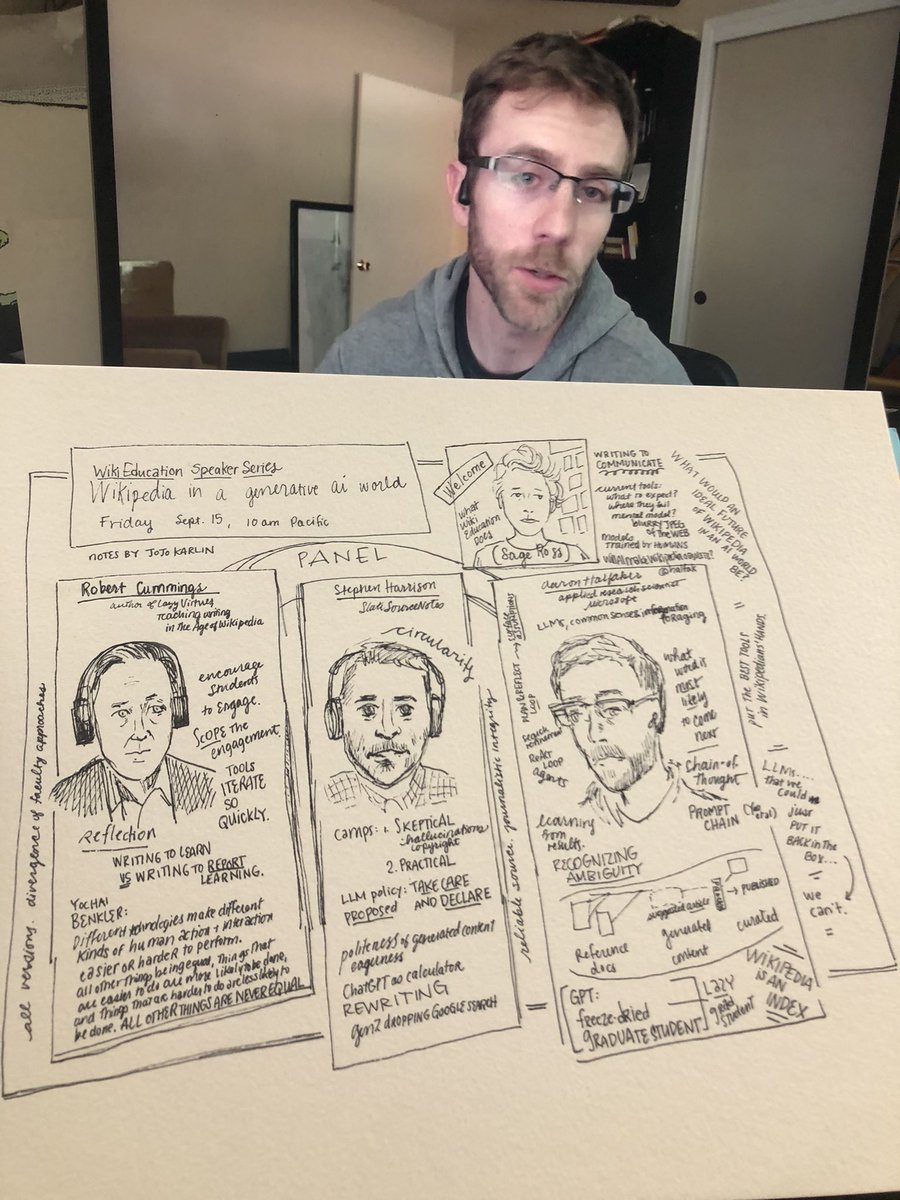 Wiki Education Speaker Series
Wikipedia in a generative ai world
Friday Sept. 15, 10am Pacific
NOTES BY JOJO KARLIN
PANEL
Welcome
what
Wiki
Education
Does
Sage Ross
WRITING TO
COMMUNICATE
current tools:
what to expect?
where they fail
mental model?
blurry JPEG
of THE WEB
models
trained by HUMANS
@halfak
WHAT WOULD AN
IDEAL FUTURE
OF WIKIPEDIA
IN AN AI WORLD
BE?
all versions. divergence of faculty approaches
Robert Cummings
author of Lazy Virtues
teaching writing
in the Age of Wikipedia
encourage
students
to Engage.
SCOPE the
engagement
TOOLS
ITERATE
SO
QUICKLY.
reflection
WRITING TO LEARN
VS WRITING TO REPORT
LEARNING.
YOCHAI
BENKLER:
Different technologies make different
kinds of human action + interaction
easier or harder to perform.
all other things being equal, things that
are easier to do are more likely to be done,
and things that are harder to do are less likely to
be done. ALL OTHER THINGS ARE NEVER EQUAL
Stephen Harrison
Slate Source Notes
circularity
camps: 1. SKEPTICAL
hallucinations
copyright
2. PRACTICAL
LLM policy: TAKE CARE
PROPOSED AND DECLARE
politeness of generated content
eagerness
ChatGPT as calculator
REWRITING
genZ dropping GOOGLE SEARCH
reliable source. journalistic integrity
Aaron Halfaker
applied research scientist
Microsoft
LLMs, common sense, information
foraging
surface assumptions
MAP & REFLECT
LOOP
search
refinement
ReAct
LOOP
agents
what
word is
most
likely
to come
next
Chain-of
thought
PROMPT
CHAIN
learning
from
results.
RECOGNIZING
AMBIGUITY
suggested answer
→ PUBLISHED
Reference
docs
generated
content
curated
GPT:
freeze-dried
GRADUATE STUDENT
LAZY
grad
student
WIKIPEDIA
IS AN
INDEX
PUT THE BEST TOOLS
in WIKIPEDIANS' HANDS.
LLMs....
that we
could
just
PUT IT
BACK IN THE
BOX...
we
can't.